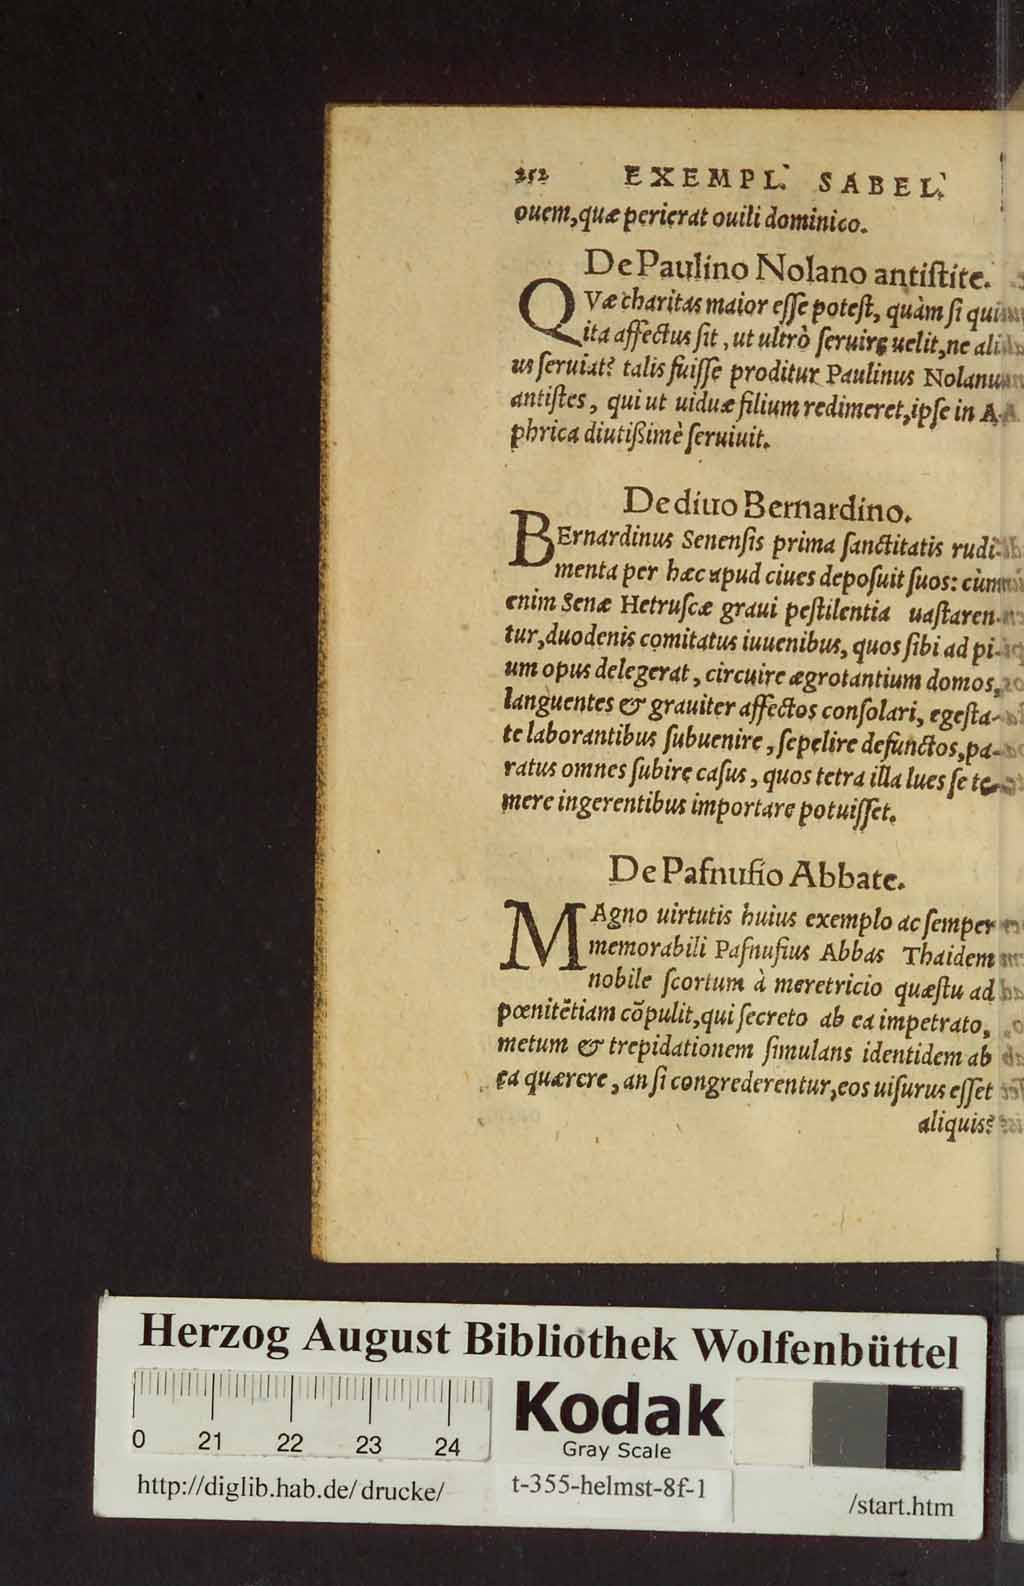 252 EXEMPL. SABEL.
ouem, quæ perierat ouili dominico.
De Paulino Nolano antiſtite.
QVæ charitas maior eſſe poteſt, quàm ſi qui
ita affectus ſit, ut ultrò ſeruire uelit, ne ali
us ſeruiat? talis fuiſſe proditur Paulinus Nolanus
antiſtes, qui ut uiduæ filium redimeret, ipſe in A
phrica diutißimè ſeruiuit.
De diuo Bernardino.
BErnardinus Senenſis prima ſanctitatis rudi-
menta per hæc apud ciues depoſuit ſuos: cùm
enim Senæ Hetruſcæ graui peſtilentia uaſtaren-
tur, duodenis comitatus iuuenibus, quos ſibi ad pi-
um opus delegerat, circuire ægrotantium domos,
languentes & grauiter affectos conſolari, egeſta-
te laborantibus ſubuenire, ſepelire defunctos, pa-
ratus omnes ſubire caſus, quos tetra illa lues ſe te-
mere ingerentibus importare potuiſſet.
De Pafnufio Abbate.
MAgno uirtutis huius exemplo ac ſemper
memorabili Pafnufius Abbas Thaidem
nobile ſcortum à meretricio quæſtu ad
pœnitẽtiam cõpulit, qui ſecreto ab ea impetrato,
metum & trepidationem ſimulans identidem ab
ea quærere, an ſi congrederentur, eos uiſurus eſſet
aliquis?
Herzog August Bibliothek Wolfenbüttel
0 21 22 23 24
Kodak
Gray Scale
http://diglib.hab.de/drucke/ t-355-helmst-8f-1 /start.htm